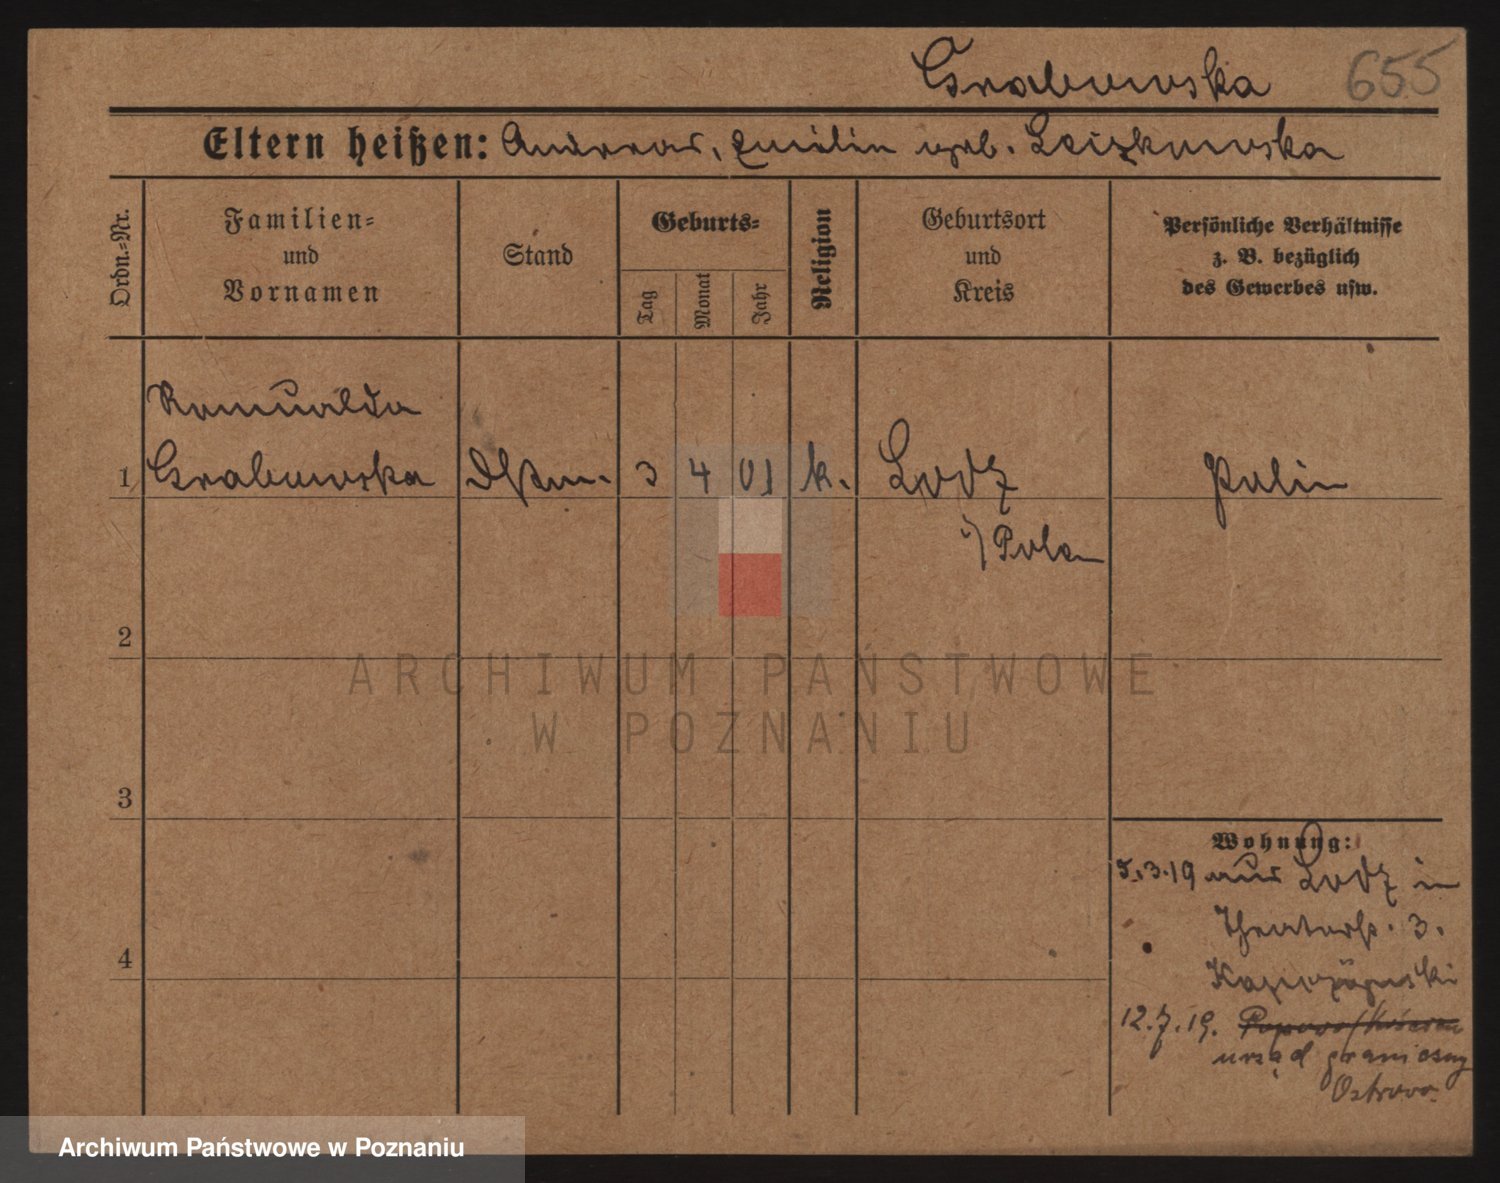 Grabowska 655
Eltern heißen: Andreas, Emilie geb.
Ordn.-Nr.
Familien-
und
Vornamen
Stand
Geburts-
Tag
Monat
Jahr
Religion
Geburtsort
und
Kreis
Persönliche Verhältnisse
z. B. bezüglich
des Gewerbes usw.
Romualda
1 Grabowska 3 4 01 k. Lodz Polin
i/Polen
2
ARCHIWUM PAŃSTWOWE
W POZNANIU
3
Wohnung:
5.3.19 aus Lodz in
Theaterstr. 3.
4
12.7.19.
urząd graniczny
Ostrowo.
Archiwum Państwowe w Poznaniu